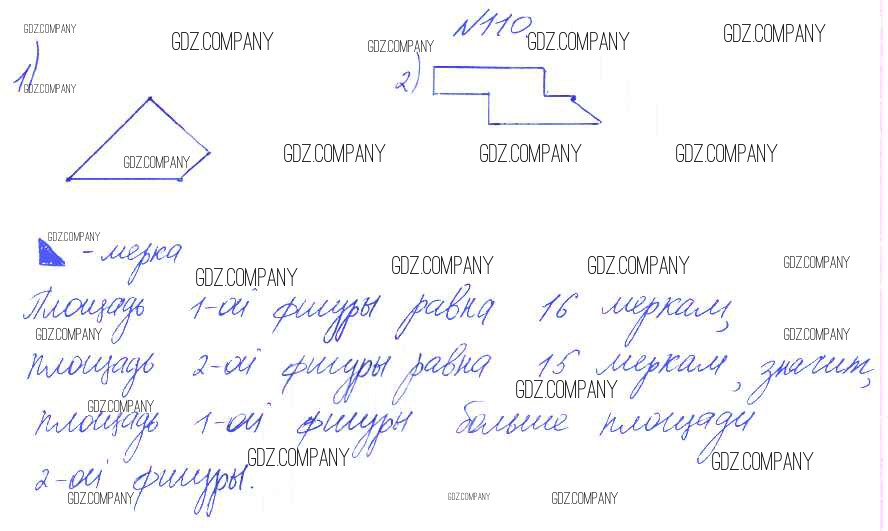 GDZ.COMPANY GDZ.COMPANY GDZ.COMPANY №110. GDZ.COMPANY GDZ.COMPANY
1) GDZ.COMPANY 2)
GDZ.COMPANY GDZ.COMPANY GDZ.COMPANY GDZ.COMPANY
GDZ.COMPANY
- мерка
GDZ.COMPANY GDZ.COMPANY GDZ.COMPANY GDZ.COMPANY
Площадь 1-ой фигуры равна 16 меркам,
GDZ.COMPANY GDZ.COMPANY
площадь 2-ой фигуры равна 15 меркам, значит,
GDZ.COMPANY GDZ.COMPANY
площадь 1-ой фигуры больше площади
GDZ.COMPANY GDZ.COMPANY
2-ой фигуры.
GDZ.COMPANY GDZ.COMPANY GDZ.COMPANY